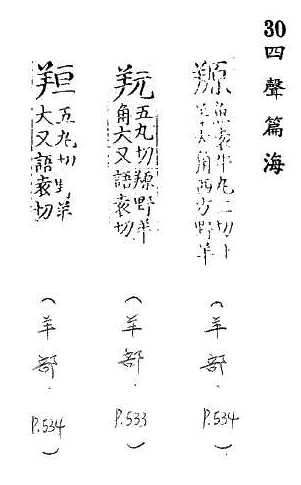 30四聲篇海
羱
魚袁牛丸二切
大角西方野羊
(羊部. P.534)
五丸切羱野羊
角大又語袁切
(羊部. P.533)
五丸切生羊
大又語袁切
(羊部. P.534)